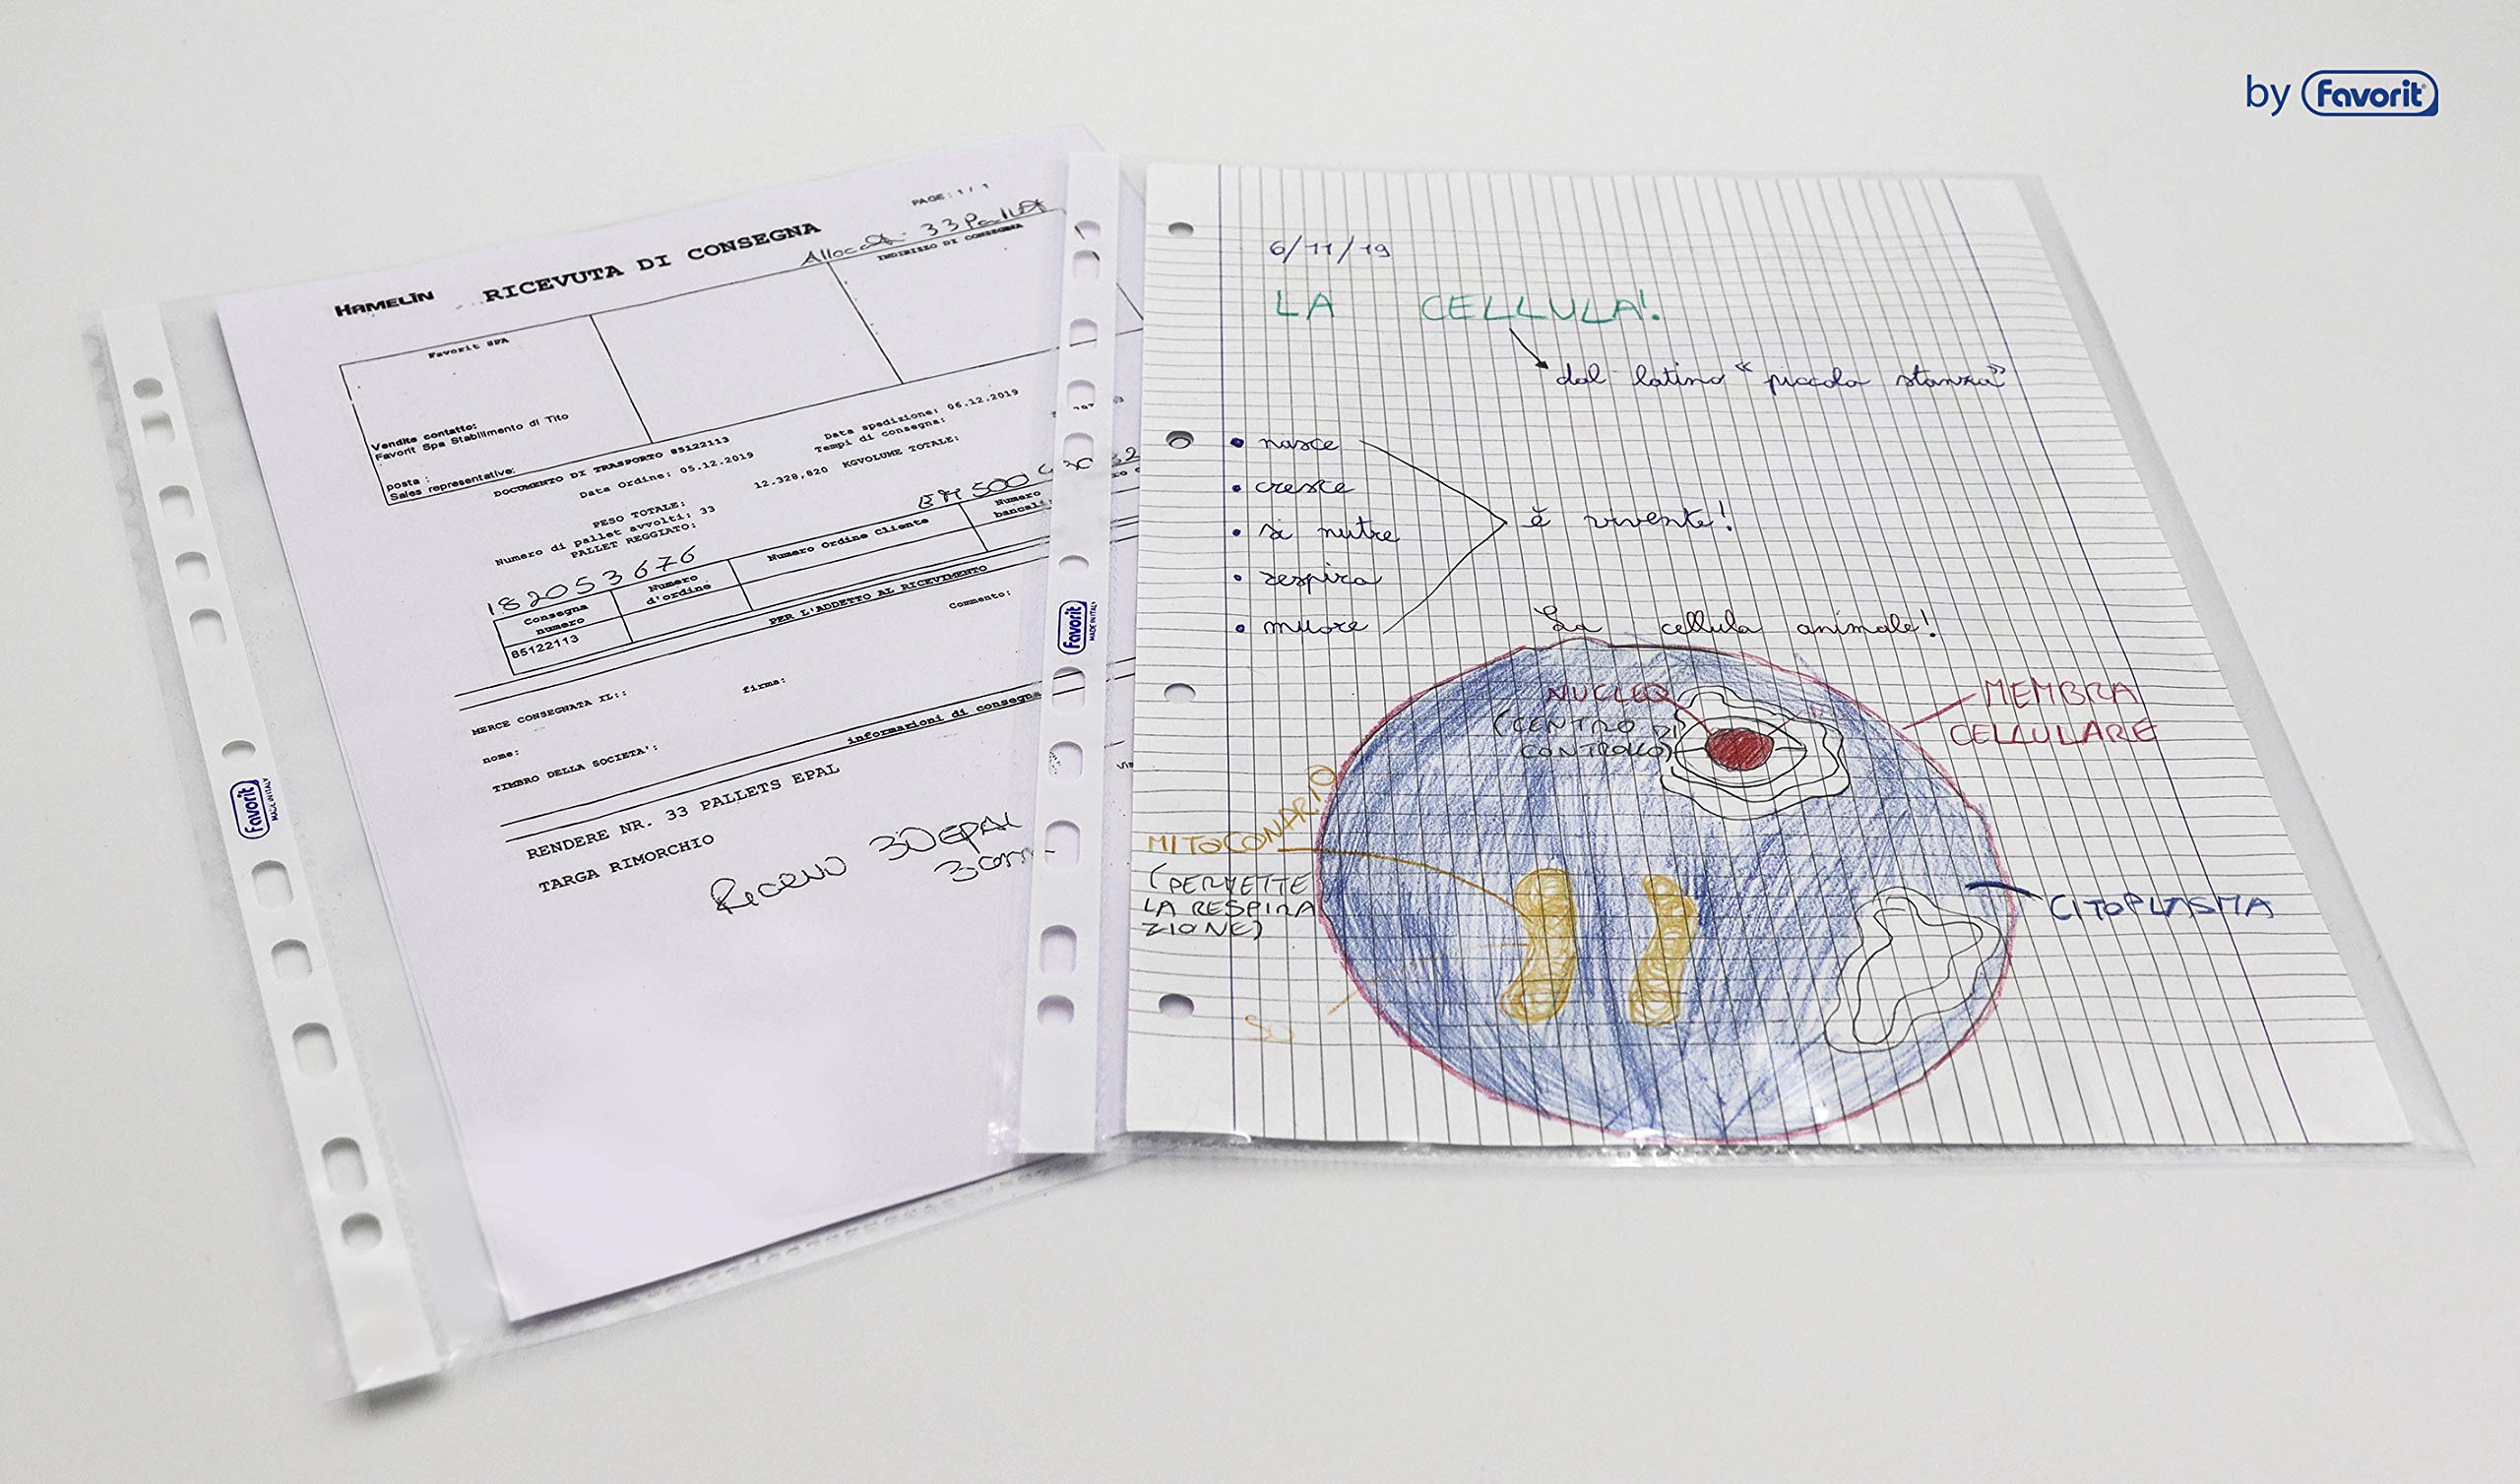 by Favorit
PAGE: 1 / 1
HAMELIN RICEVUTA DI CONSEGNA
33 Pallet
INDIRIZZO DI CONSEGNA
Favorit SPA
Vendite contatto:
Favorit Spa Stabilimento di Tito
posta :
Sales representative:
DOCUMENTO DI TRASPORTO 85122113
Data Ordine: 05.12.2019
Data spedizione: 06.12.2019
Tempi di consegna:
PESO TOTALE:
12.328,820 KGVOLUME TOTALE:
Numero di pallet avvolti: 33
PALLET REGGIATO:
182053676
Consegna numero
Numero d'ordine
Numero Ordine Cliente
Numero bancali
85122113
PER L'ADDETTO AL RICEVIMENTO
Commento:
MERCE CONSEGNATA IL::
firma:
nome:
TIMBRO DELLA SOCIETA':
informazioni di consegna
RENDERE NR. 33 PALLETS EPAL
TARGA RIMORCHIO
30 EPAL
Favorit
MADE IN ITALY
Favorit
MADE IN ITALY
6/11/19
LA CELLULA!
dal latino “piccola stanza”
• nasce
• cresce
• si nutre
• respira
• muore
è vivente!
La cellula animale!
NUCLEO
(CENTRO DI
CONTROLLO)
MEMBRA
CELLULARE
MITOCONDRIO
(PERMETTE
LA RESPIRA
ZIONE)
CITOPLASMA